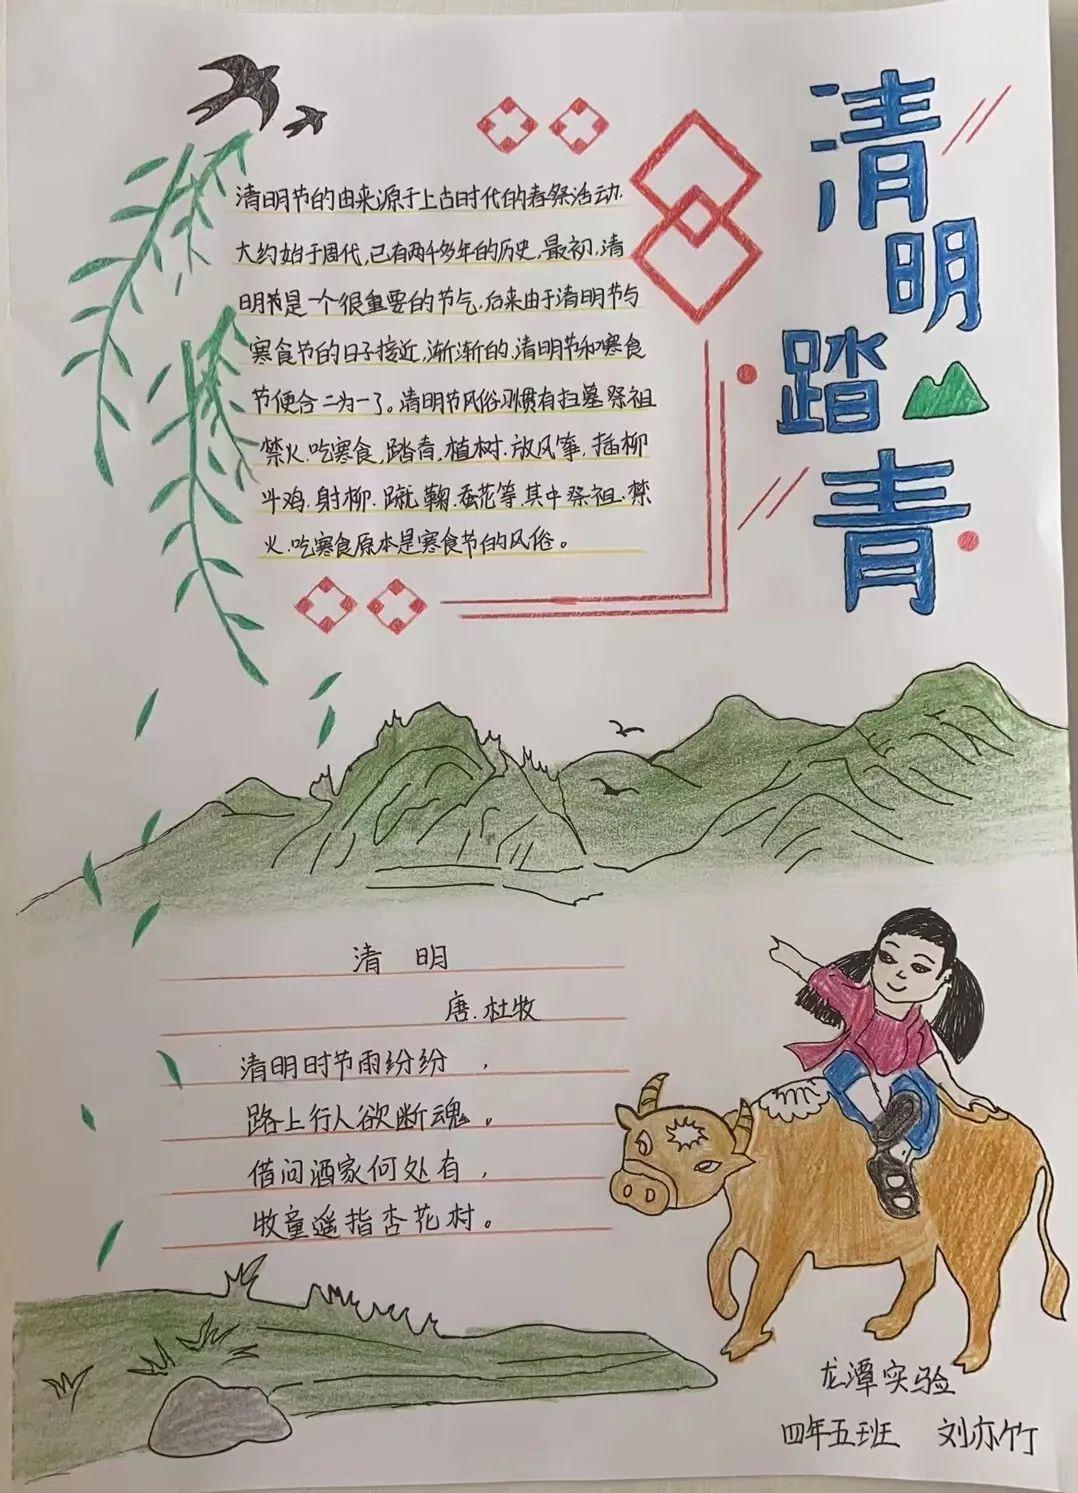 清明踏青
清明节的由来源于上古时代的春祭活动.
大约始于周代,已有两千多年的历史.最初,清
明节是一个很重要的节气.后来由于清明节与
寒食节的日子接近.渐渐的.清明节和寒食
节便合二为一了。清明节风俗习惯有扫墓.祭祖
禁火.吃寒食.踏青,植树.放风筝.插柳
斗鸡.射柳.蹴鞠.蚕花等.其中祭祖.禁
火.吃寒食原本是寒食节的风俗。
清 明
唐.杜牧
清明时节雨纷纷,
路上行人欲断魂。
借问酒家何处有,
牧童遥指杏花村。
龙潭实验
四年五班 刘亦竹